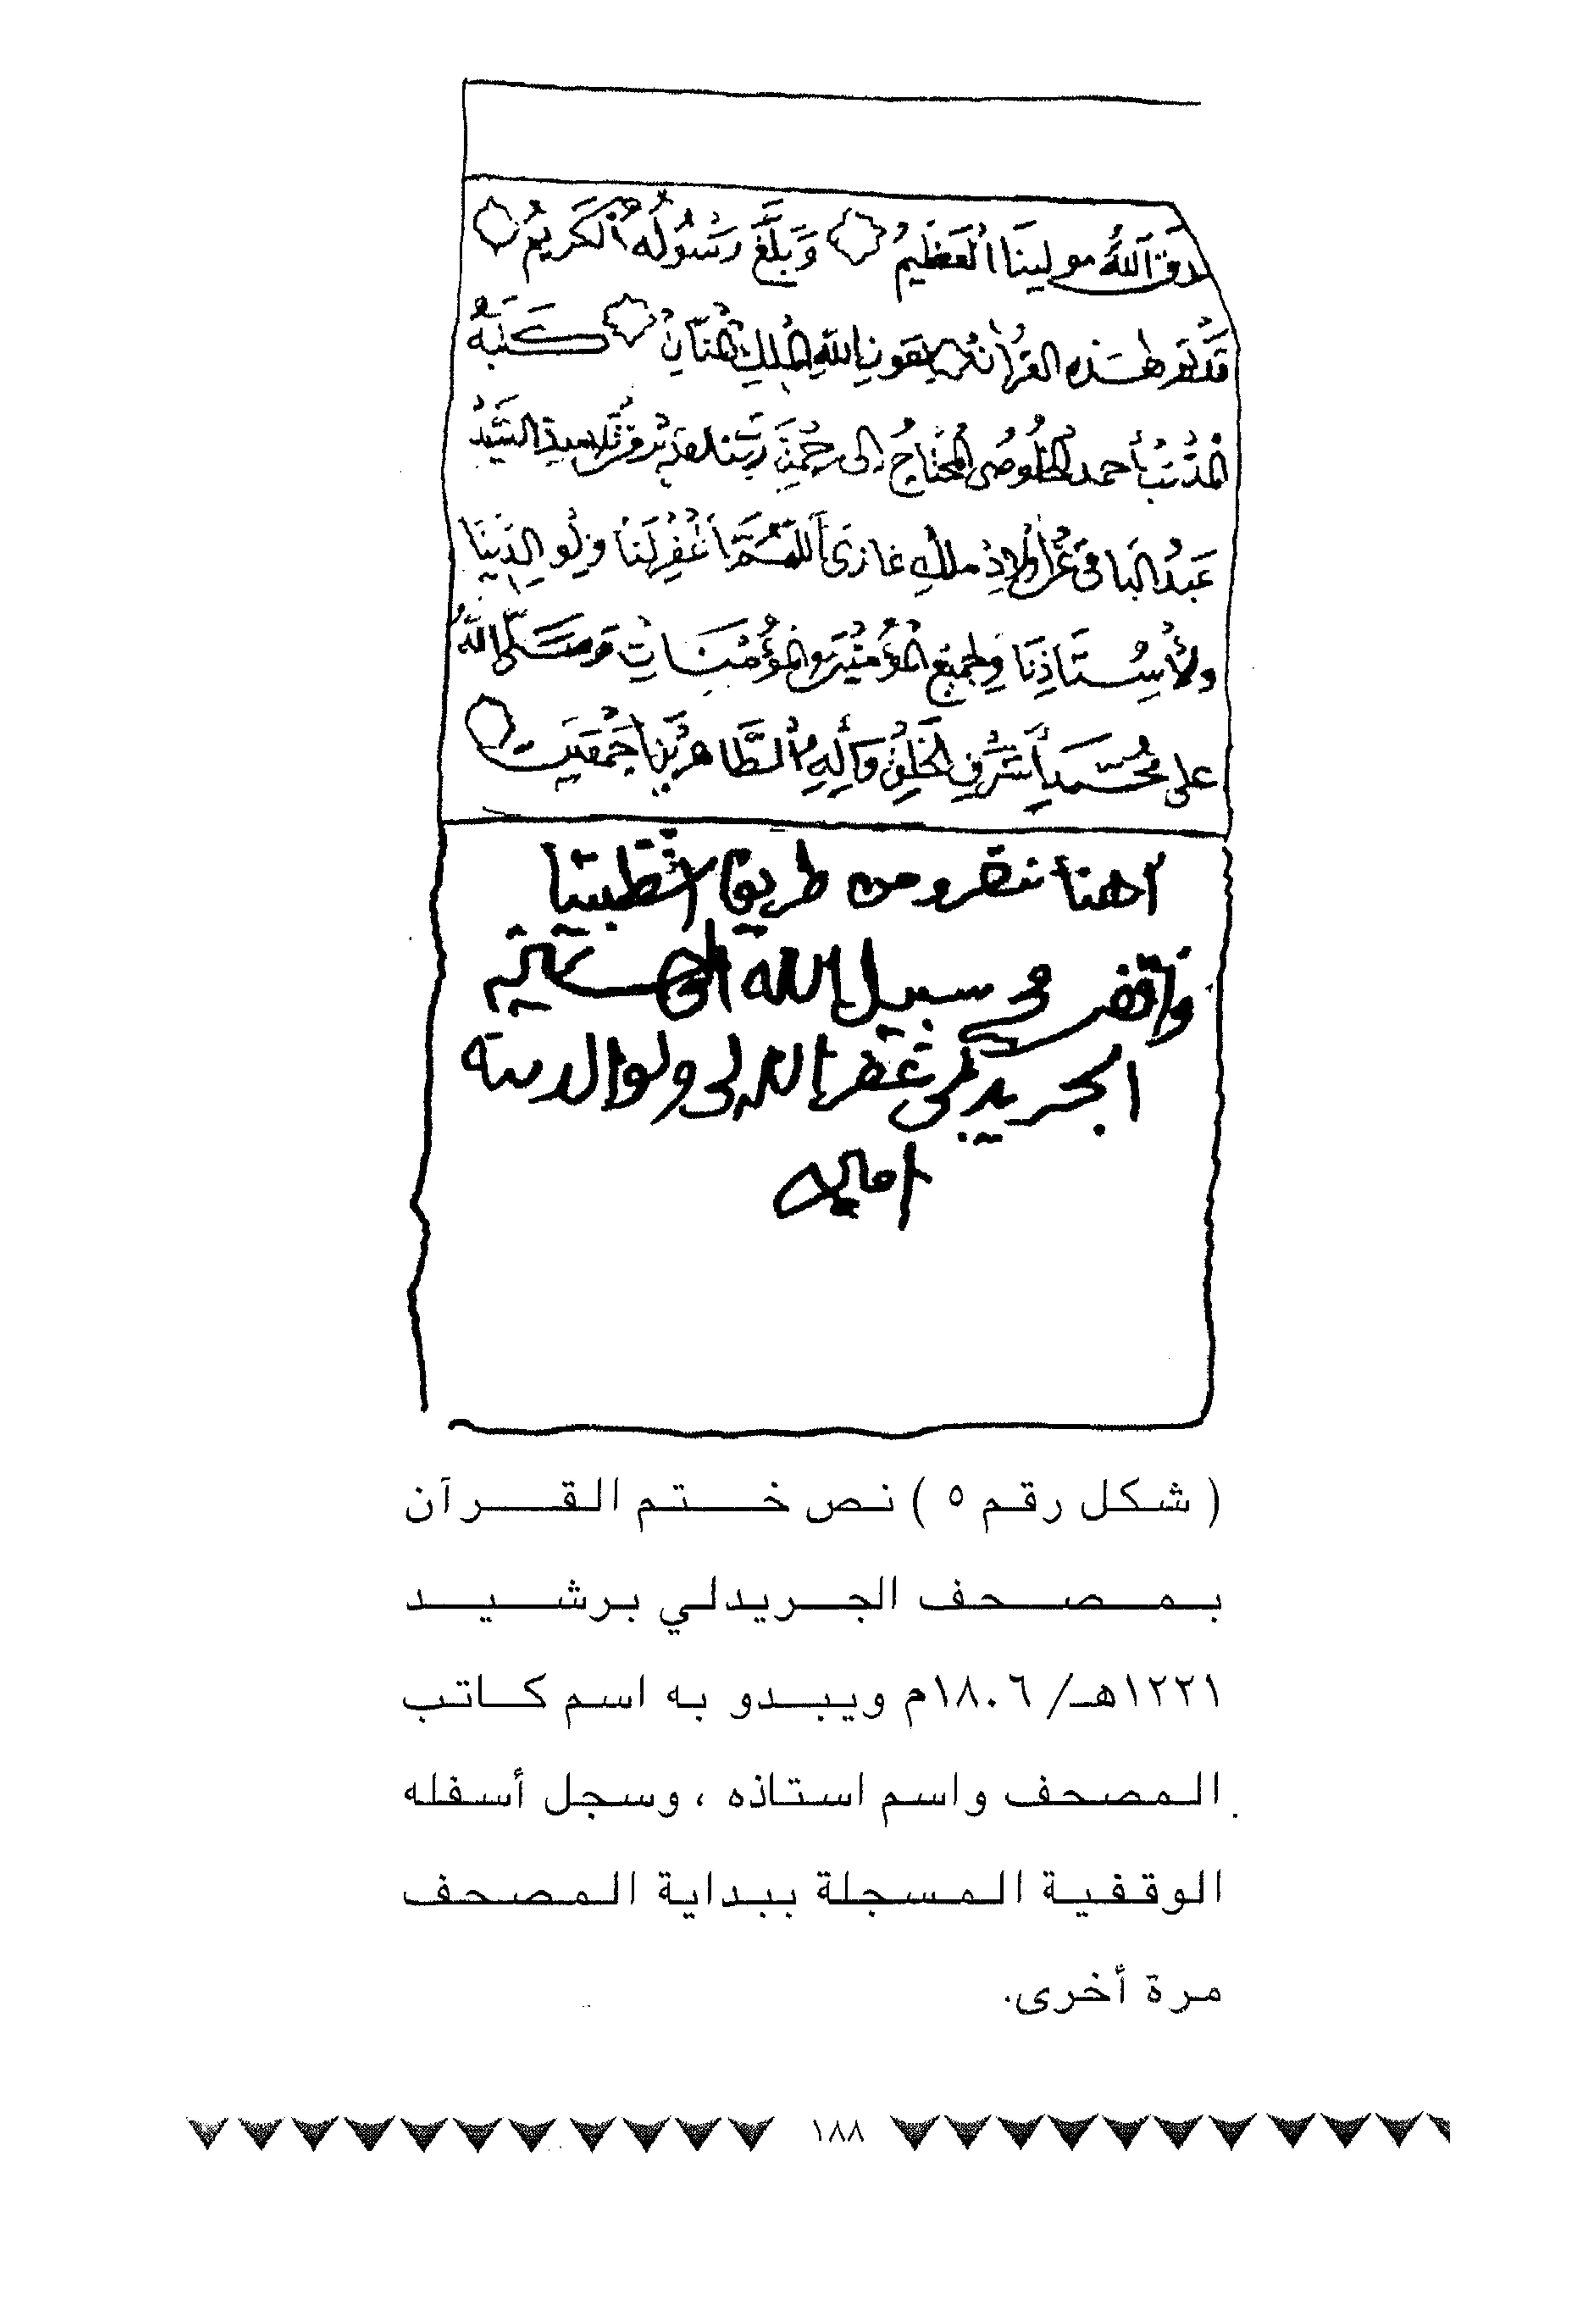 صدق ٱللهُ مولينَا ٱلعَظِيمُ وَبَلَّغَ رَسُولُهُ ٱلْكَرِيمُ
قَدْ تَمَّ هٰذه القرآن بعون اللهِ الملكِ المنّانِ كَتَبَهُ
المذنبُ أحمد الخلوصى المحتاجُ إلى رحمة تلاميذ السَّيِّدُ
عَبدُ البَاقى ملك غازى ٱللهُمَّ اغْفِرْ لَنَا وَلِوالِدَينَا
ولأُسْتَاذِنَا وَلجميع المؤمنِينَ والمؤْمِنَاتِ وَصَلَّى اللهُ
على محُمّدٍ أَشرَفِ الخَلقِ وآلِهِ ٱلطَّاهِرِينَ أجْمَعِينَ
من طريق
فى سبيل الله
الجريدلى غفر الله لى ولوالديه
امين
( شكل رقم ٥ ) نص ختم القرآن
بمصحف الجريدلي برشيد
١٢٢١هـ/ ١٨٠٦م ويبدو به اسم كاتب
المصحف واسم استاذه ، وسجل أسفله
الوقفية المسجلة ببداية المصحف
مرة أخرى.
١٨٨